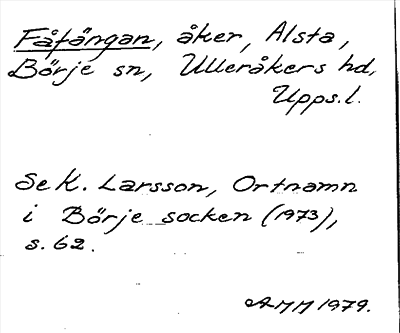 Fåfängan, åker, Alsta,
Börje sn, Ulleråkers hd,
Upps.l.
Se K. Larsson, Ortnamn
i Börje socken (1973),
s. 62.
AMM 1979.